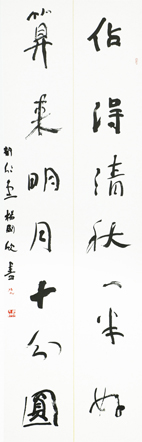 佔得清秋一半好
算來明月十分圓